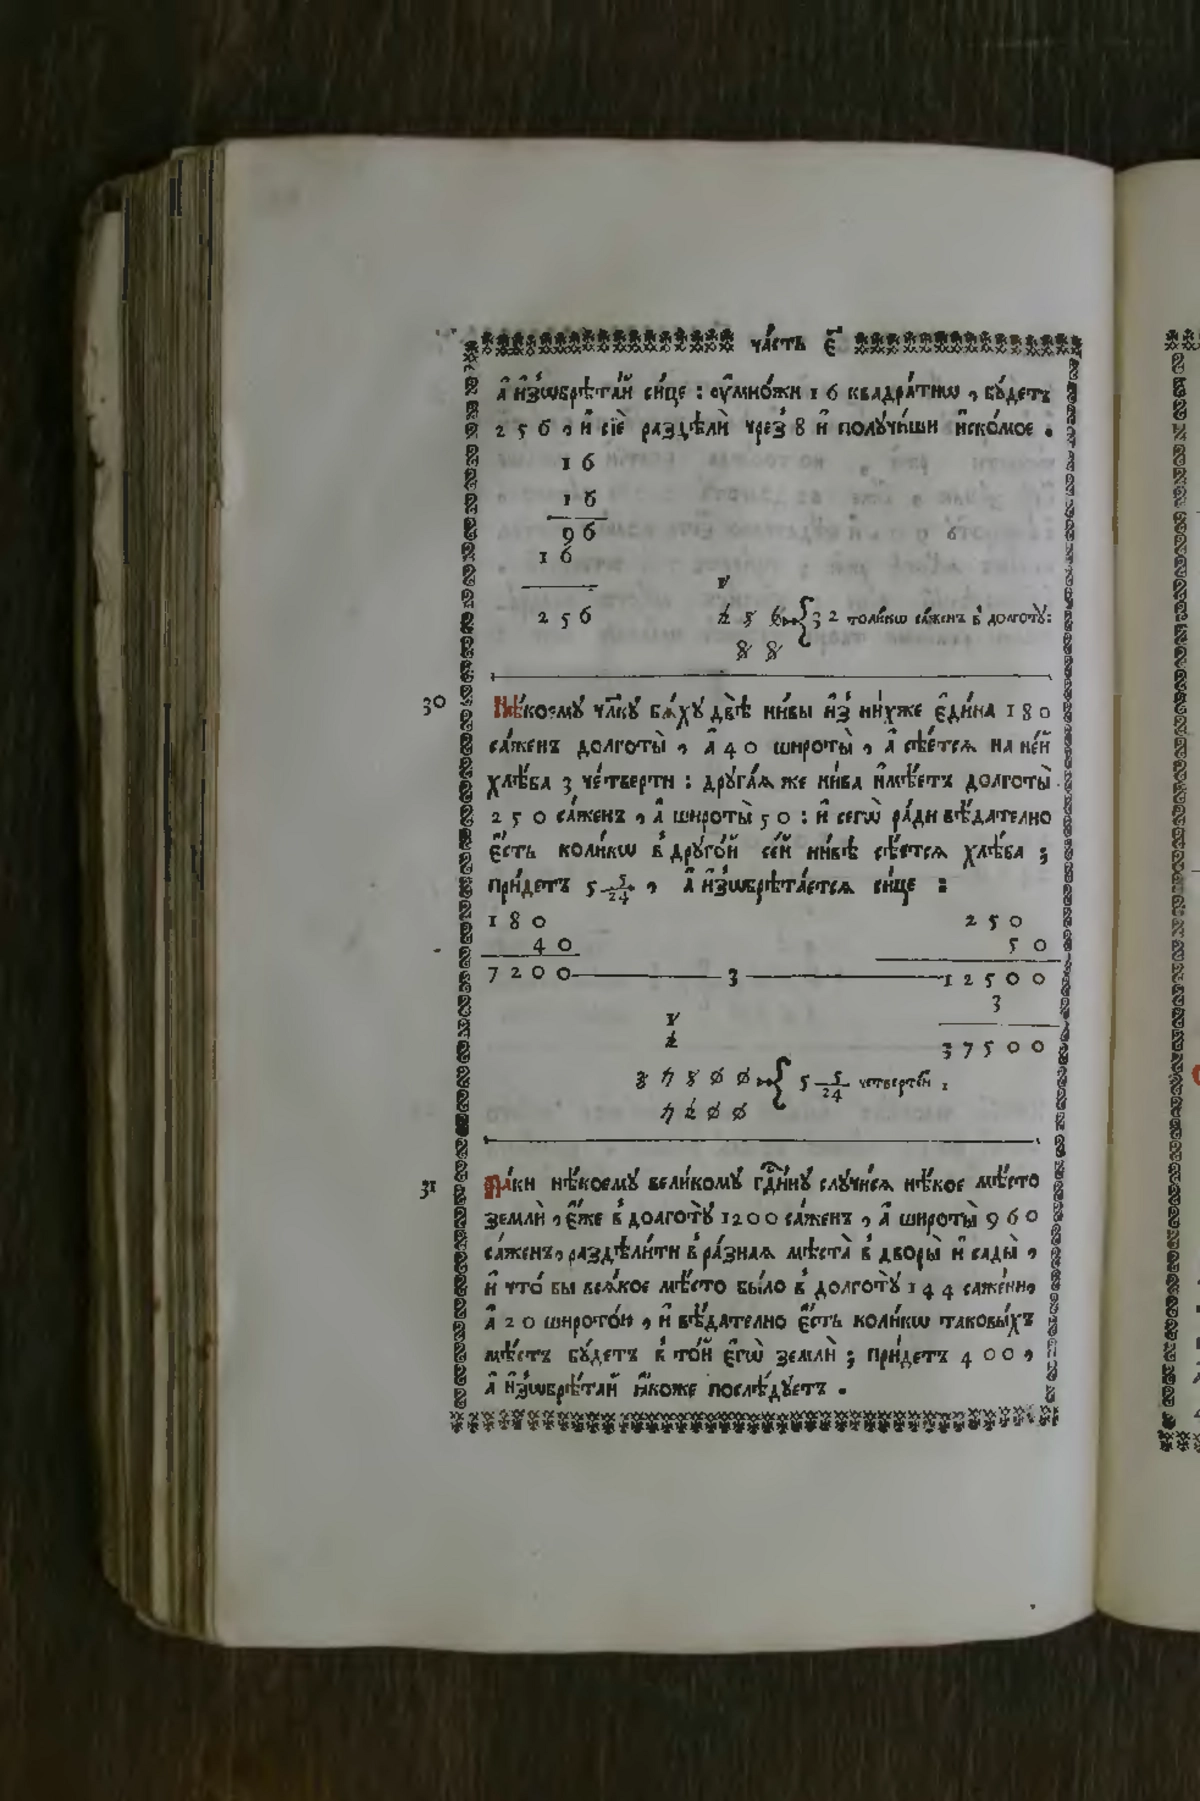 ча́сть є҃
а҆ и҆зѡбрѣта́й си́це : ᲂу҆мно́жи 16 квадра́тнѡ , бу́детъ
256 , и҆ сїѐ раздѣлѝ чрез̾ 8 и҆ полу́чиши и҆ско́мое .
16
16
96
16
256
1
256 { 32 толи́кѡ са́женъ в̾ долготꙋ̀ :
88
30 Нѣ́коемꙋ чл҃кꙋ бѧ́хꙋ двѣ̀ ни́вы и҆з̾ ни́хже є҆ди́на 180
са́женъ долготы̀ , а҆ 40 широты̀ , а҆ сѣ́етсѧ на не́й
хлѣ́ба 3 че́тверти : дрꙋга́ѧ же ни́ва и҆мѣ́етъ долготы̀
250 са́женъ , а҆ широты̀ 50 : и҆ сегѡ̀ ра́ди вѣ́дателно
є҆́сть коли́кѡ в̾ дрꙋго́й се́й ни́вѣ сѣ́етсѧ хлѣ́ба ;
прі́идетъ 5 5/24 , а҆ и҆зѡбрѣта́етсѧ си́це :
180 250
40 50
7200 3 12500
3
1
2 37500
37500 { 5 5/24 четверте́й :
7200
31 Па́ки нѣ́коемꙋ вели́комꙋ гдⷭ҇и́нꙋ слꙋчи́сѧ нѣ́кое мѣ́сто
землѝ , є҆́же в̾ долготꙋ̀ 1200 са́женъ , а҆ широты̀ 960
са́женъ , раздѣли́ти в̾ ра́знаѧ мѣста̀ в̾ дворы̀ и҆ сады̀ ,
и҆ что́ бы всѧ́кое мѣ́сто бы́ло в̾ долготꙋ̀ 144 саже́ни ,
а҆ 20 широто́ю , и҆ вѣ́дателно є҆́сть коли́кѡ таковы́хъ
мѣ́стъ бу́детъ в̾ то́й є҆гѡ̀ землѝ ; прі́идетъ 400 ,
а҆ и҆зѡбрѣта́й ꙗ҆́коже послѣ́дꙋетъ .